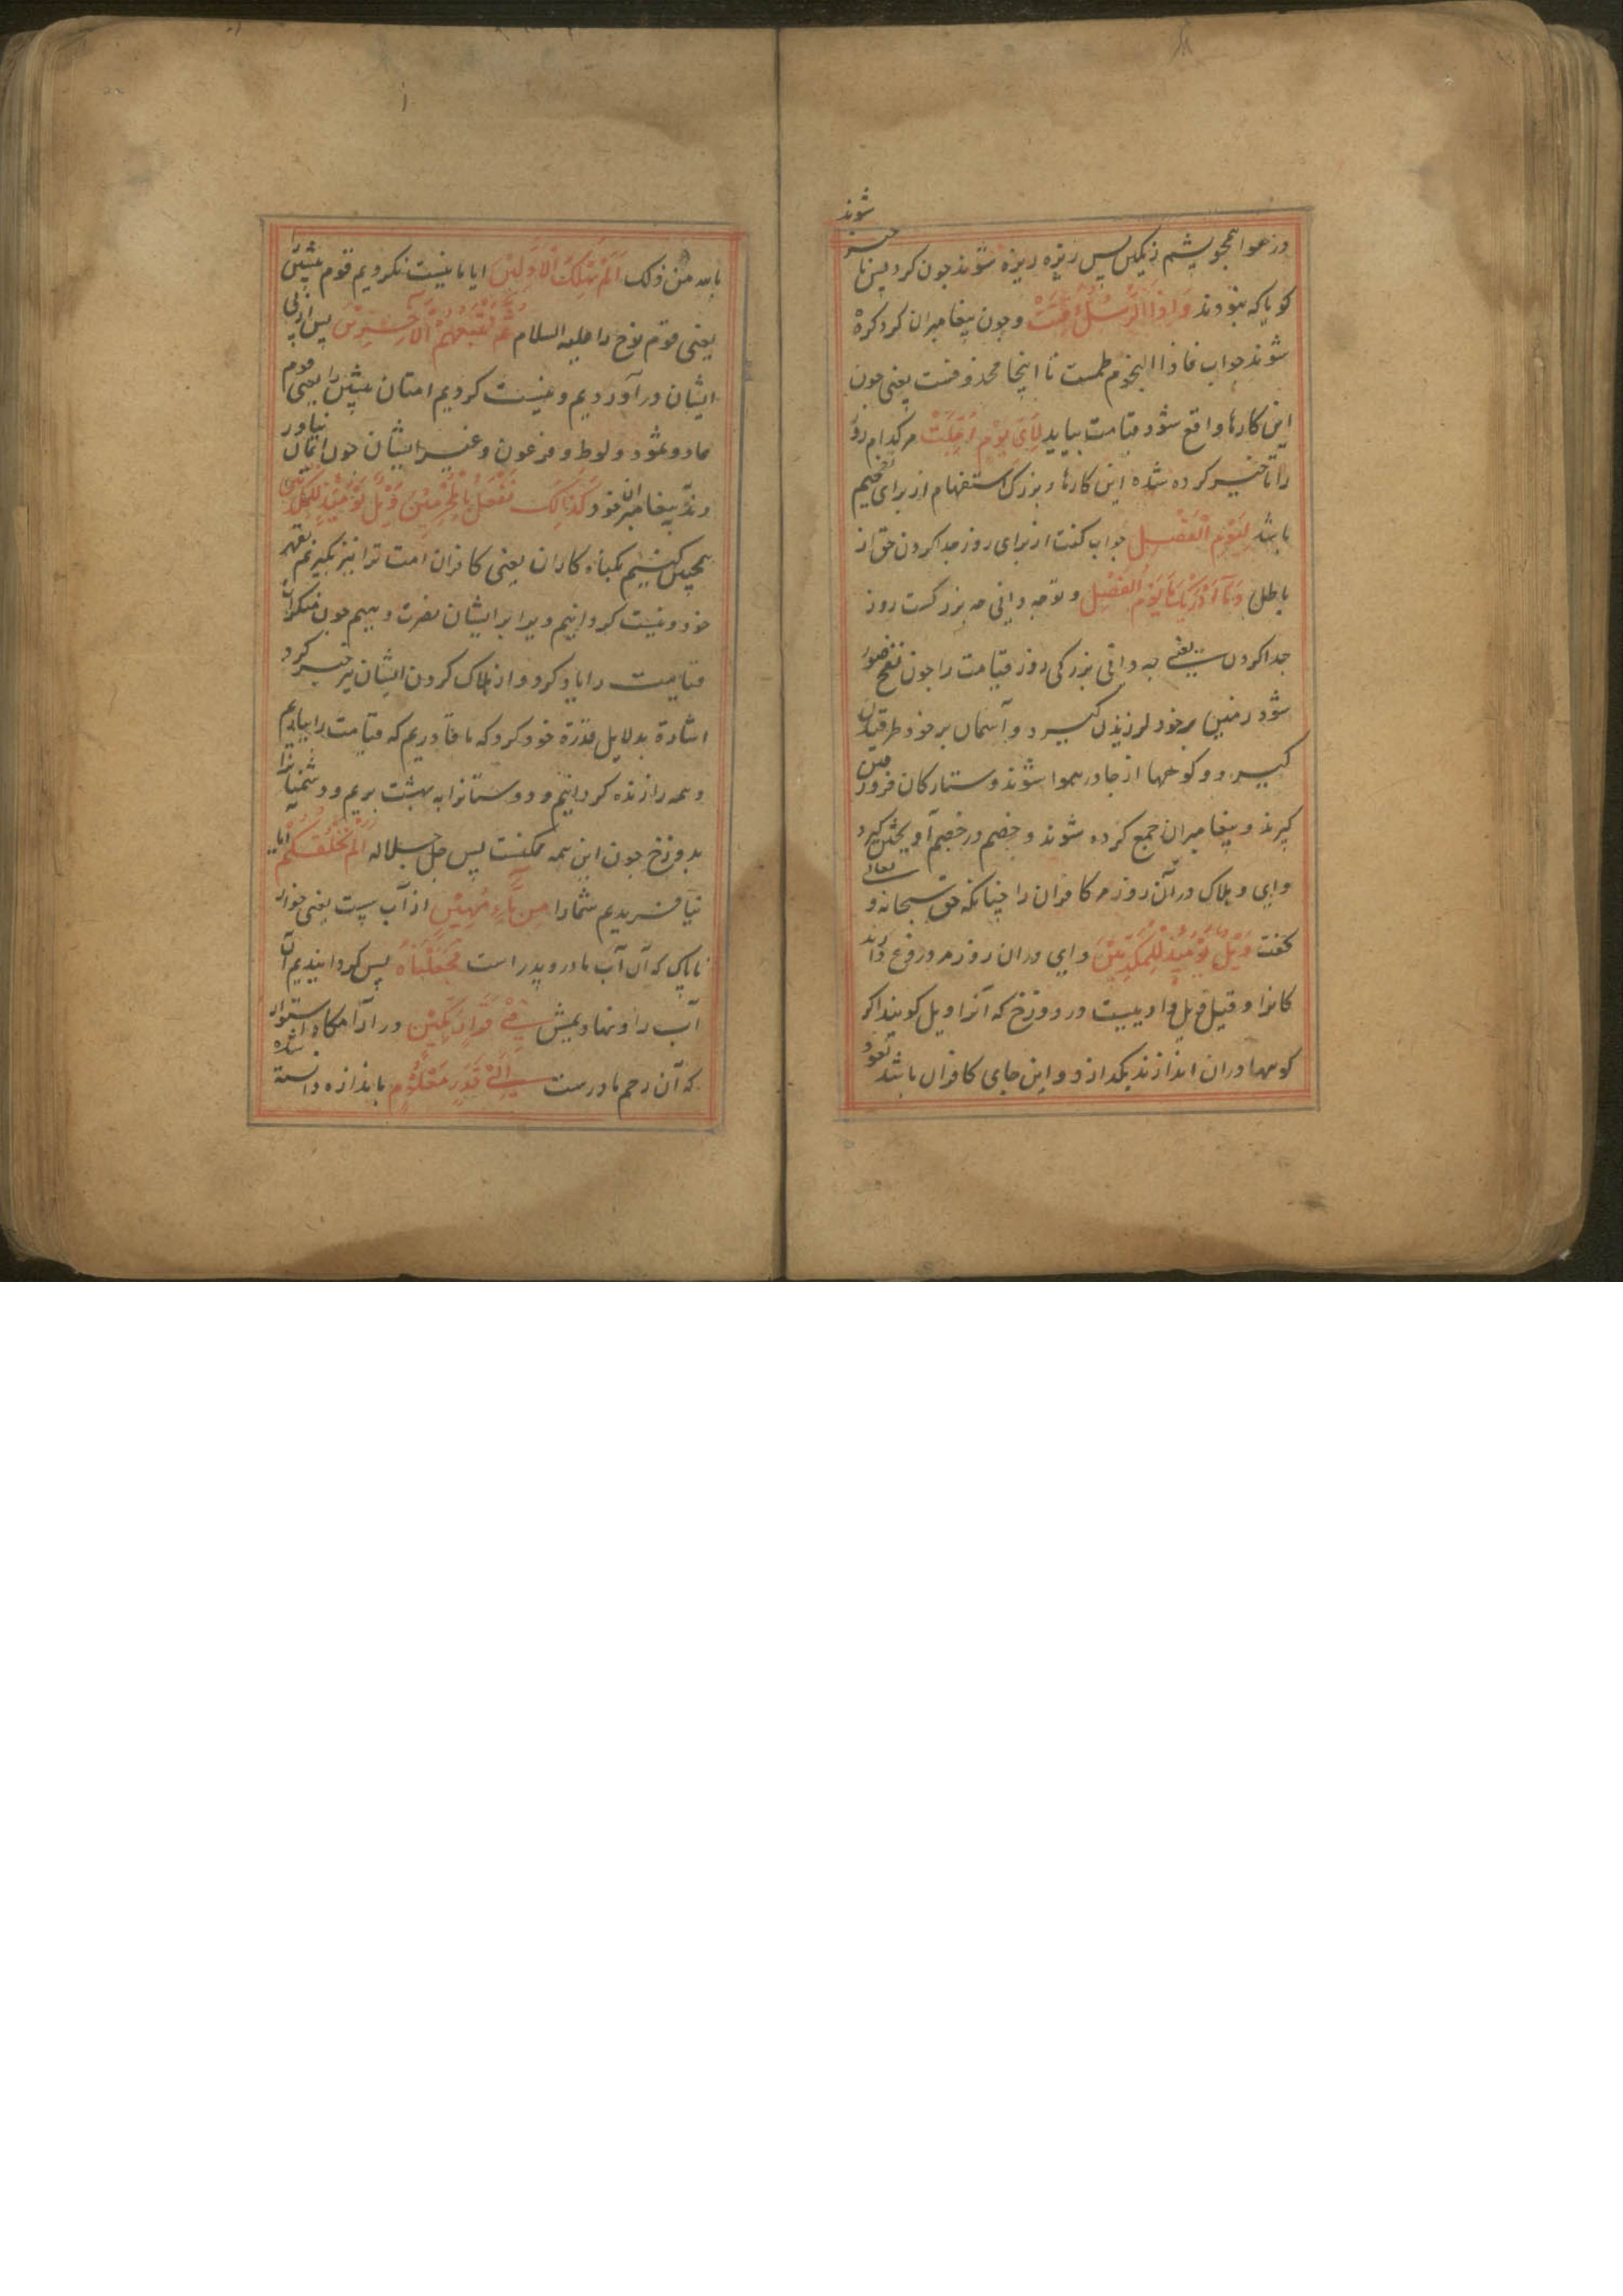 شوند
در هوا همچو پشم رنگین پس ریزه ریزه شوند چون کرد پس نا چیز
کویا که نبودند وَاِذَا الرُّسُلُ اُقِّتَتْ و چون پیغامبران کرد کرده
شوند جواب فاذا النجوم طمست تا اینجا محذوفست یعنی چون
این کارها واقع شود قیامت بیاید لِاَیِّ یَوْمٍ اُجِّلَتْ مر کدام روز
را تاخیر کرده شده این کارها و بزرک استفهام از برای تفخیم
باشد لِیَوْمِ الْفَصْلِ جواب کفت از برای روز جدا کردن حق از
باطل وَمَا اَدْرٰیكَ مَا یَوْمُ الْفَصْلِ و تو چه دانی چه بزرکست روز
جدا کردن یعنی چه دانی بزرکی روز قیامت را چون نفخ صور
شود زمین بر خود لرزیدن کیرد و آسمان بر خود طرقیدن
کیرد و کوهها از جا در هوا شوند و ستارکان فرو رفتن
کیرند و پیغامبران جمع کرده شوند و خصم در خصم آویختن کیرد
وای و هلاک در آن روز مر کافران را چنانکه حق سبحانه و تعالی
کفت وَیْلٌ یَوْمَئِذٍ لِلْمُکَذِّبِیْنَ وای در ان روز مر دروغ دارند
کانرا و قیل ویل وادییست در دوزخ که آنرا ویل کویند اکر
کوهها در ان اندازند بکدازد و این جای کافران باشد نعوذ
بالله من ذلک اَلَمْ نُهْلِكِ الْاَوَّلِیْنَ ایا ما نیست نکردیم قوم پیشین را
یعنی قوم نوح را علیه السلام ثُمَّ نُتْبِعُهُمُ الْاٰخِرِیْنَ پس از پی
ایشان در آوردیم و نیست کردیم امتان پیشین را یعنی قوم
عاد و ثمود و لوط و فرعون و غیر ایشان چون ایمان نیاور
دند پیغامبران خود کَذٰلِكَ نَفْعَلُ بِالْمُجْرِمِیْنَ وَیْلٌ یَوْمَئِذٍ لِلْمُکَذِّبِیْنَ
همچنین کنیم بکناه کاران یعنی کافران امت ترا نیز بکیریم بقهر
خود و نیست کردانیم و ترا بر ایشان نصرت دهیم چون منکران
قیامت را یاد کرد و از هلاک کردن ایشان خبر کرد
اشارة بدلایل قدرة خود کرد که ما قادریم که قیامت را بیاریم
و همه را زنده کردانیم و دوستانرا به بهشت بریم و دشمنانرا
بدوزخ چون این همه ممکنست پس جل جلاله اَلَمْ نَخْلُقْکُمْ ایا ما
نیافریدیم شما را مِنْ مَاءٍ مَهِیْنٍ از آب سپت یعنی خوار
ناپاک که آن آب مادر و پدر است فَجَعَلْنَاهُ پس کردانیدیم آن
آب را و نهادیمش فِیْ قَرَارٍ مَکِیْنٍ در آرامکاه استوار
که آن رحم مادرست اِلٰی قَدَرٍ مَعْلُوْمٍ باندازه دانسته شده